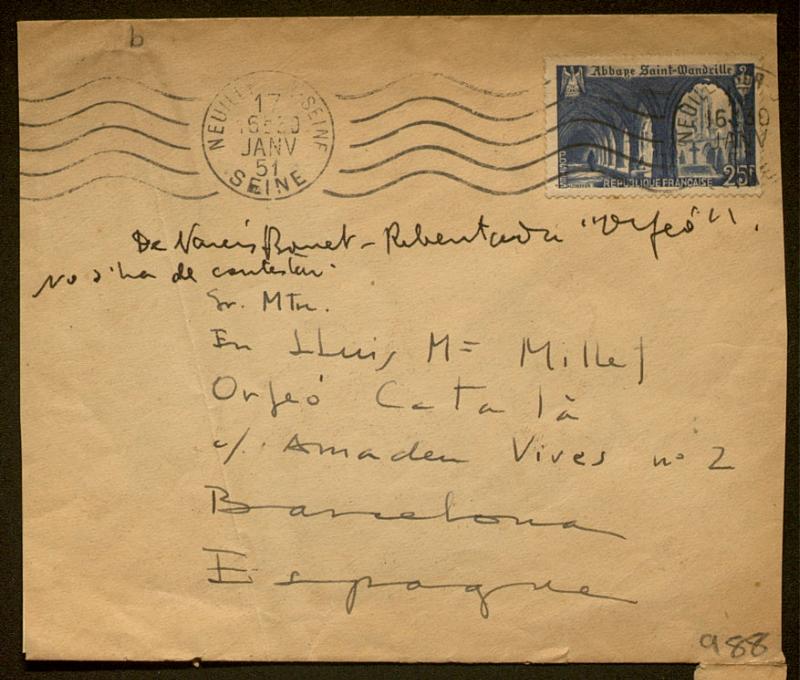 b
NEUILLY SUR SEINE
17
16H30
JANV
51
SEINE
Abbaye Saint-Wandrille
REPUBLIQUE FRANÇAISE
25F
16H30
JANV
De Narcís Bonet - "Orfeó".
No s'ha de contestar.
Sr. Mtre.
En Lluis Mª Millet
Orfeó Català
c/. Amadeu Vives nº 2
Barcelona
Espagne
988